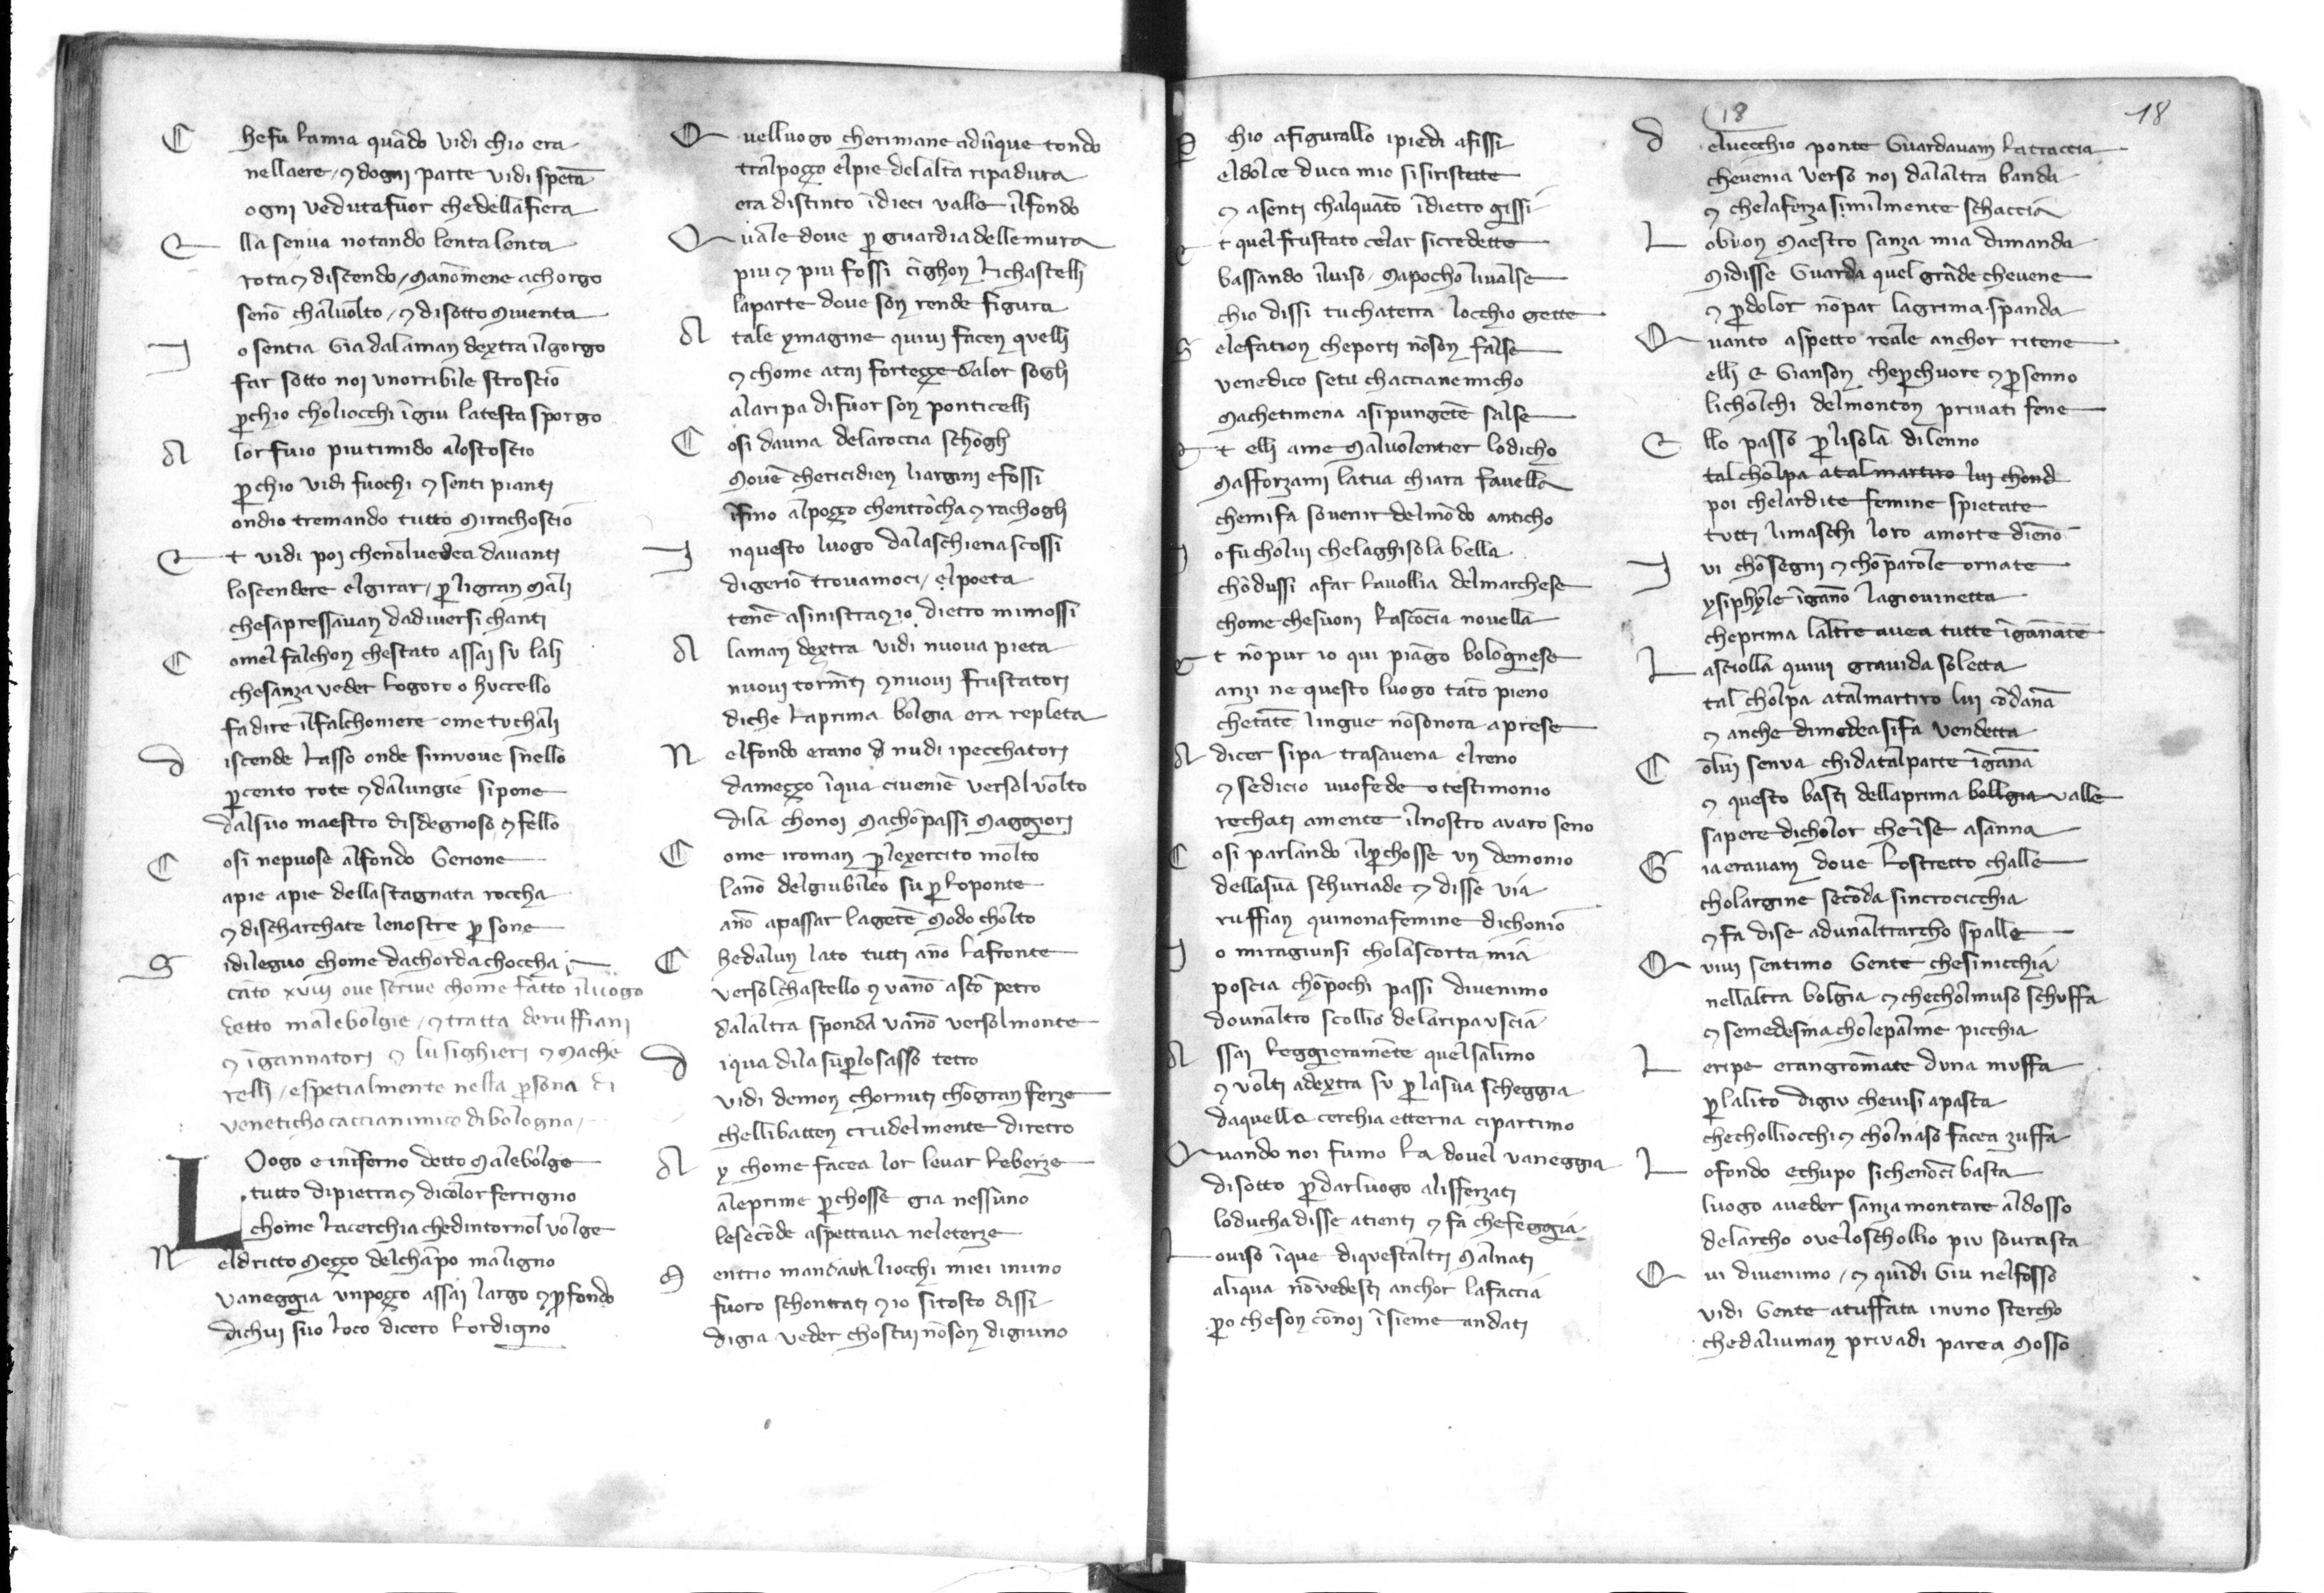 C hefu lamia quādo vidi chio era
nellaere / ⁊ dogni parte vidi spēta
ogni veduta fuor che della fiera
E lla senva notando lenta lenta
rota ⁊ discendo / Manōmene achorgo
senō chalvolto / ⁊ disotto Miventa
I o sentia Gia dalaman dextra ilgorgo
far sotto noi vnorribile stroscio
ꝑchio choliocchi īgiu latesta sporgo
A lor fuio piu timido aloscoscio
ꝑchio vidi fuochi ⁊ senti pianti
ondio tremando tutto Mirachoscio
E t vidi poi chenoluedea davanti
loscendere elgirar / ꝑ ligran Mali
chesapressavan dadiversi chanti
C omel falchon chestato assai su lali
chesanza veder logoro o huccello
fadire ilfalchoniere ome tuchali
D iscende lasso onde simvove snello
ꝑcento rote ⁊ dalungie sipone
dalsuo maestro disdegnoso ⁊ fello
C osi nepuose alfondo Gerione
apie apie dellastagnata roccha
⁊ discharchate lenostre ꝑsone
S idileguo chome dachorda choccha
cāto xviij ove scrive chome fatto iluogo
detto malebolgie / ⁊ tratta deruffiani
⁊ īgannatori ⁊ lusighieri ⁊ Mache
relli / espetialmente nella ꝑsona di
veneticho caccianimico dibologna /
L Vogo e inīferno detto Malebolge
tutto dipietra ⁊ dicolor ferrigno
chome lacerchia chedintornol volge
N eldritto Mezzo delchāpo maligno
vaneggia vnpozzo assai largo ⁊ ꝓfondo
dichui suo loco dicero lordigno
Q uelluogo cherimane adūque tondo
tralpozzo elpie delalta ripa dura
era distinto īdieci valle ilfondo
Q uale dove ꝑ guardia dellemura
piu ⁊ piu fossi cīghon lichastelli
laparte dove son rende figura
A tale ymagine quivi facen quelli
⁊ chome atai fortezze dalor sogli
alaripa difuor son ponticelli
C osi dauna delaroccia schogli
Movē chericidien liargini efossi
īfino alpozzo chentrōcha ⁊ rachogli
I nquesto luogo dalaschiena scossi
digeriō trovamoci / elpoeta
tenē asinistra ⁊ io dietro mimossi
A laman dextra vidi nuova pieta
nuovi tormēti ⁊ nuovi frustatori
diche laprima bolgia era repleta
N elfondo erano d nudi ipecchatori
damezzo īqua civeniē versol volto
dila chonoi Machōpassi Maggiori
C ome iroman ꝑ lexercito molto
lanō delgiubileo su ꝑ loponte
anō apassar lagētē Modo cholto
C hedalun lato tutti ano lafronte
versolchastello ⁊ vanō ascō petro
dalaltra sponda vanō versolmonte
D iqua dila suꝑlosasso tetro
vidi demon chornuti chōgran ferze
chellibatten crudelmente diretro
A y chome facea lor levar leberze
aleprime ꝑchosse gia nessuno
lesecōde aspettava neleterze
M entrio mandava liocchi miei inuno
fuoro schontrati ⁊ io sitosto dissi
digia veder chostui nōson digiuno
P chio afigurallo ipiedi afissi
eldolce duca mio sisiristette
⁊ asenti chalquāto īdietro gissi
E t quel frustato celar sicredette
bassando ilviso / Mapocho livalse
chio dissi tu chaterra locchio gette
S elefation cheporti nōson false
venedico setu chaccianemicho
Machetimena asipungētē salse
E t elli ame Malvolentier lodicho
Mafforzami latua chiara favella
chemifa sovenir delmōdo anticho
I o fucholui chelaghisola bella
chōdussi afar lavollia delmarchese
chome chesuoni lascōcia novella
E t nōpur io qui piāgo bolognese
anzi ne questo luogo tāto pieno
chetātē lingue nōsonora aprese
A dicer sipa trasavena elreno
⁊ sedicio vuofede o testimonio
rechati amente ilnostro avaro seno
C osi parlando ilꝑchosse vn demonio
dellasua schuriade ⁊ disse via
ruffian quinonafemine dichonio
I o miragiunsi cholascorta mia
poscia chōpochi passi divenimo
dounaltro scollio delaripa vscia
A ssai leggieramēte quelsalimo
⁊ volti adextra su ꝑ lasua scheggia
daquelle cerchia etterna cipartimo
Q uando noi fumo la dovel vaneggia
disotto ꝑ darluogo alisferzati
loducha disse atienti ⁊ fa chefeggia
L oviso īque diquestaltri Malnati
aliqua nōvedesti anchor lafaccia
ꝑo cheson cōnoi īsieme andati
18
18
D elvecchio ponte Guardavam latraccia
chevenia verso noi dalaltra banda
⁊ chelaferza similmente schaccia
L obuon Maestro sanza mia dimanda
Midisse Guarda quel grāde chevene
⁊ ꝑdolor nōpar lagrima spanda
Q uanto aspetto reale anchor ritene
elli e Gianson cheꝑchuore ⁊ ꝑsenno
licholchi delmonton privati fene
E llo passo ꝑ lisola dilenno
tal cholpa atal martiro lui chond
poi chelardite femine spietate
tutti limaschi loro amorte dienō
I vi chōsegni ⁊ chōparole ornate
ysiphyle īgānō lagiovinetta
cheprima laltre avea tutte īgannate
L asciolla quivi gravida soletta
tal cholpa atalmartiro lui cōdāna
⁊ anche dimedea sifa vendetta
C olui senva chidatalparte īgāna
⁊ questo basti dellaprima bollgia valle
sapere dicholor cheīse asanna
G ia eravam dove lostretto challe
cholargine secōda sincrocicchia
⁊ fa dise adunaltrarcho spalle
Q uivi sentimo Gente chesinicchia
nellaltra bolgia ⁊ checholmuso schuffa
⁊ semedesma cholepalme picchia
L eripe erangrōmate duna muffa
ꝑ lalito digiu chevisi apasta
checholliocchi ⁊ cholnaso facea zuffa
L ofondo echupo sichenōci basta
luogo aveder sanza montare aldosso
delarcho oveloschollio piu sovrasta
Q ui divenimo / ⁊ quīdi Giu nelfosso
vidi Gente atuffata inuno stercho
chedaliuman privadi parea Mosso